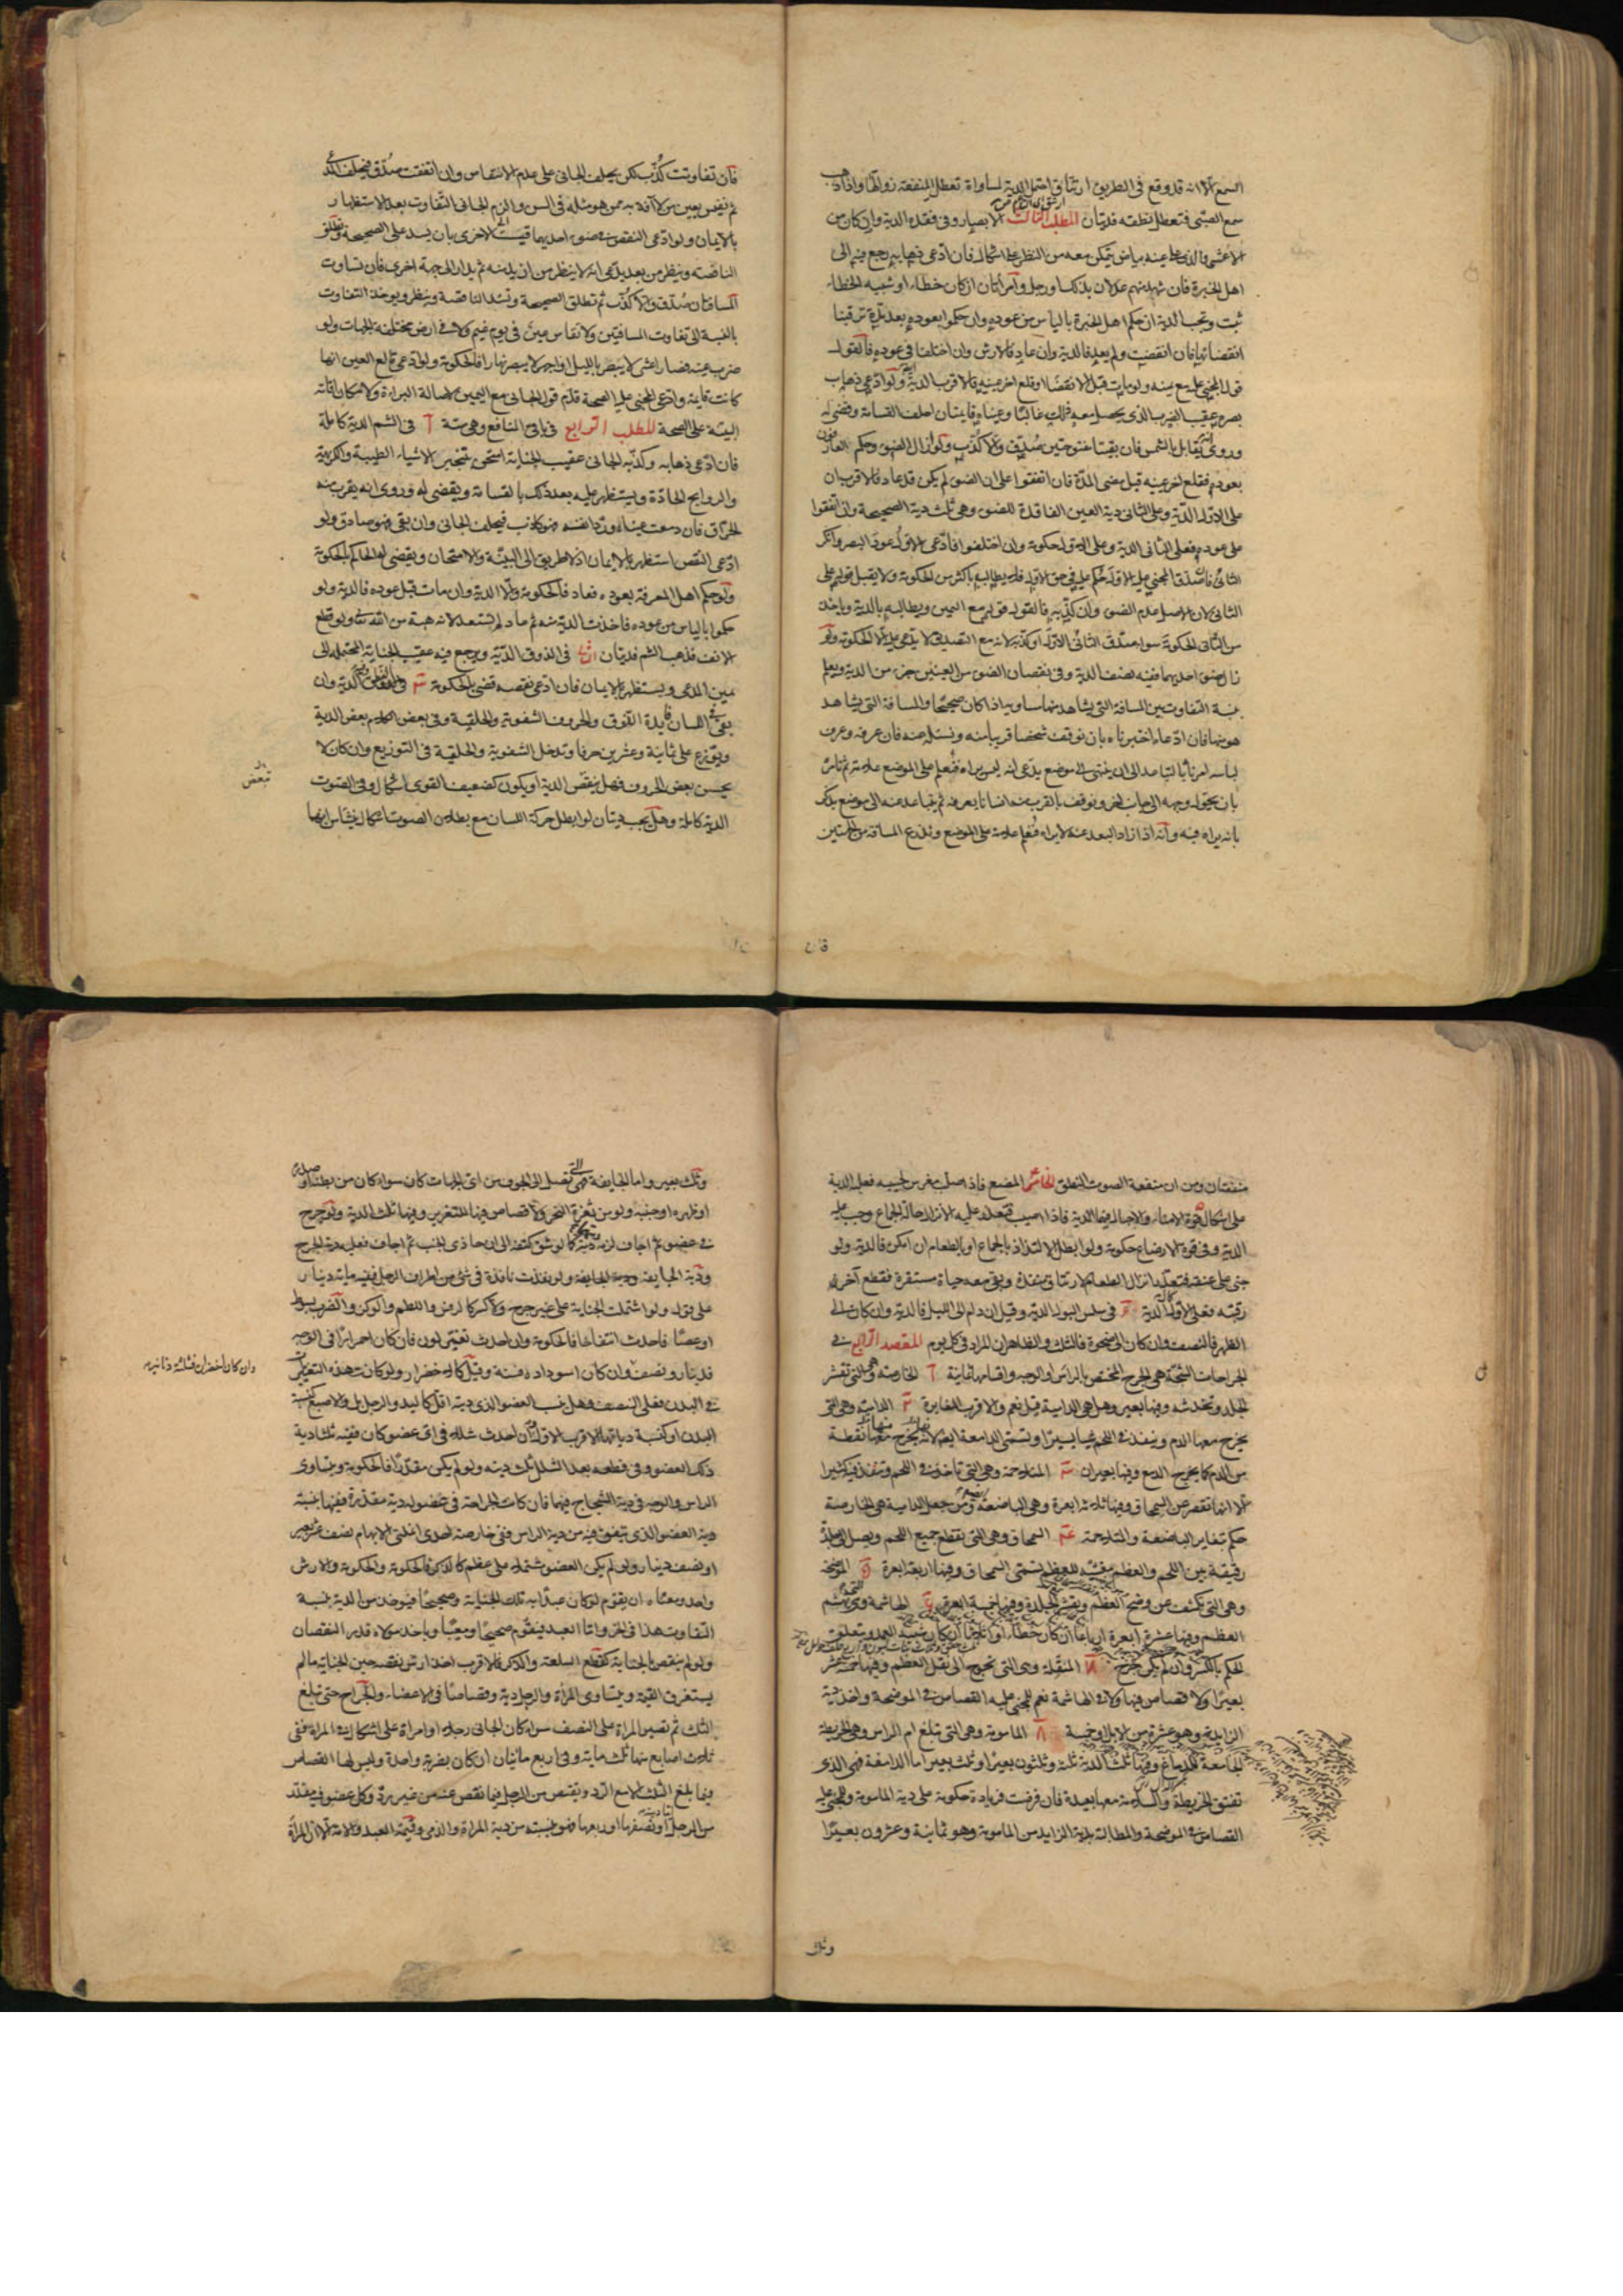 السمع الا انه قد وقع فى الطريق ارتتاق احتمل الدية لمساواة تعطل المنفعة زوالها واذا ذهب
سمع الصبى فتعطل نطقه فديتان المطلب الثالث الابصار وفى فقده الدية وان كان من
الاعشى والذى على عينه بياض يتمكن معه من النظر على اشكال فان ادعى ذهابه رجع فيه الى
اهل الخبرة فان شهد منهم عدلان بذلك او رجل وامرأتان ان كان خطاء او شبيه الخطاء
ثبت وتجب الدية ان حكم اهل الخبرة بالياس من عوده وان حكموا بعوده بعد مدة ترقبنا
انقضائها فان انقضت ولم يعد فالدية وان عاد فالارش وان اختلفا فى عوده فالقول
قول المجنى عليه مع يمينه ولو مات قبل الانقضاء او قلع اخر عينه فالاقرب الدية ولو ادعى ذهاب
بصره عقيب الضرب الذى يحصل معه ذلك غالبا وعيناه قايمتان احلف القسامة وقضى له
وروى يقابل بالشمس فان بقيتا مفتوحتين صدق والا كذب ولو زال الضوء وحكم العارفون
بعوده فقلع اخر عينه قبل مضى المدة فان اتفقوا على ان الضوء لم يكن قد عاد فالاقرب ان
على الاول الدية وعلى الثانى دية العين الفاقدة للضوء وهى ثلث دية الصحيحة وان اتفقوا
على عوده فعلى الثانى الدية وعلى الاول حكومة وان اختلفوا فادعى الاول عود البصر وانكر
الثانى فان صدق المجنى عليه الاول حكم عليه فى حق الاول فلا يطالبه باكثر من الحكومة ولا يقبل قوله على
الثانى لان الاصل عدم الضوء وان كذبه فالقول قوله مع اليمين ويطالبه بالدية وياخذ
من الثانى الحكومة سواء صدق الثانى الاول او كذبه لانه مع التصديق لا يدعى عليه الا الحكومة ولو
زال ضوء احديهما ففيه نصف الدية وفى نقصان الضوء من العينين جزء من الدية ويعلم
بنسبة التفاوت بين المسافة التى يشاهد منها مساويه اذا كان صحيحا والمسافة التى يشاهد
هو منها فان ادعاه اختبرناه بان نوقف شخصا قريبا منه ونسئله عنه فان عرفه وعرف
لباسه امرناه بالتباعد الى ان ينتهى الى موضع يدعى انه ليس يراه فنعلم على الموضع علامة ثم نامره
بان يحول وجهه الى جانب اخر ونوقف بالقرب منه انسانا يعرفه ثم يتباعد عنه الى موضع يذكر
بانه يراه فيه وانه اذا زاد البعد عنه لايراه فنعلم علامة على الموضع ونذرع المسافة من الجهتين
فان
فان تفاوتت كذب لكن يحلف الجانى على عدم الانتقاص وان اتفقت صدق فيحلف المدعى
ثم نقيس بعين من لا آفة به ممن هو مثله فى السن والزم الجانى التفاوت بعد الاستظهار
بالايمان ولو ادعى النقص فى ضوء احديهما قيست الى الاخرى بان يسد على الصحيحة وتطلق
الناقصة وينظر من بعد يدعى انه لا ينظر من ازيد منه ثم يدار الى جهة اخرى فان تساوت
المسافتان صدق والا كذب ثم تطلق الصحيحة وتسد الناقصة وينظر ويوخذ التفاوت
بالنسبة الى تفاوت المسافتين ولا تقاس عين فى يوم غيم ولا فى ارض مختلفة الجهات ولو
ضرب عينه فصار اعشى لا يبصر بالليل او اجهر لا يبصر نهارا فالحكومة ولو ادعى قالع العين انها
كانت قايمة وادعى المجنى عليه الصحة قدم قول الجانى مع اليمين لاصالة البراءة ولامكان اقامة
البينة على الصحة المطلب الرابع فى باقى المنافع وهى ستة آ فى الشم الدية كاملة
فان ادعى ذهابه وكذبه الجانى عقيب الجناية امتحن بتبخير الاشياء الطيبة والكريهة
والروايح الحادة ويستظهر عليه بعد ذلك بالقسامة ويقضى له وروى انه يقرب منه
الحراق فان دمعت عيناه ورد انفه فهو كاذب فيحلف الجانى وان بقى فهو صادق ولو
ادعى النقص استظهر بالايمان اذ لا طريق الى البينة والامتحان ويقضى له الحاكم بالحكومة
ولو حكم اهل المعرفة بعوده فعاد فالحكومة والا الدية وان مات قبل عوده فالدية ولو
حكموا بالياس من عوده فاخذت الدية منه ثم عاد لم يستعد لانه هبة من الله تعالى ولو قطع
الانف فذهب الشم فديتان فى الذوق الدية ويرجع فيه عقيب الجناية المحتملة الى
يمين المدعى ويستظهر بالايمان فان ادعى نقصه قضى بالحكومة الدية وان
بقى فى اللسان فايدة الذوق والحروف الشفوية والحلقية وفى بعض الكلام بعض الدية
ويوزع على ثمانية وعشرين حرفا وتدخل الشفوية والحلقية فى التوزيع وان كان لا
يحسن بعض الحروف فهل ينقص الدية او يكون كضعيف القوى اشكال وفى الصوت
الدية كاملة وهل يجب ديتان لو ابطل حركة اللسان مع بطلان الصوت اشكال ينشاء من انهما
منفعتان ومن ان منفعة الصوت النطق الخامس المضغ فاذا صلب مغرس لحييه فعليه الدية
على اشكال قوة الامناء والاحبال فيهما الدية فاذا اصيب فتعذر عليه الانزال حالة الجماع وجب عليه
الدية وفى قوة الارضاع حكومة ولو ابطل الالتذاذ بالجماع او بالطعام ان امكن فالدية ولو
جنى على عنقه فتعذر انزال الطعام لارتتاق منفذه وبقى معه حياة مستقرة فقطع آخر
رقبته فعلى الاول الدية و فى سلس البول الدية وقيل ان دام الى الليل فالدية وان كان الى
الظهر فالنصف وان كان الى ضحوة فالثلث والظاهر ان المراد فى كل يوم المقصد الرابع فى
الجراحات الشجة هى الجرح المختص بالراس او الوجه واقسامها ثمانية آ الخارصة وهى التى تقشر
الجلد وتخدشه وفيها بعير وهل هى الدامية قيل نعم والاقرب المغايرة ب الدامية وهى التى
يخرج معها الدم وينفذ فى اللحم شيا يسيرا وتسمى الدامعة ايضا لانه يخرج منها نقطة
من الدم كما يخرج الدمع وفيها بعيران ج المتلاحمة وهى التى تاخذ فى اللحم وتنفذ فيه كثيرا
الا انها تقصر عن السمحاق وفيها ثلثة ابعرة وهى الباضعة ومن جعل الدامية هى الخارصة
حكم بتغاير الباضعة والمتلاحمة د السمحاق وهى التى تقطع جميع اللحم ويصل الى جلدة
رقيقة بين اللحم والعظم مغشية للعظم تسمى السمحاق وفيها اربعة ابعرة ه الموضحة
وهى التى تكشف عن وضح العظم وتقشر الجلدة وفيها خمسة ابعرة و الهاشمة وهى التى تهشم
العظم وفيها عشرة ابعرة ارباعا ان كان خطاء او اثلاثا ان كان شبيه العمد ويتعلق
الحكم بالكسر وان لم يكن جرح ز المنقلة وهى التى تحوج الى نقل العظم وفيها خمسة عشر
بعيرا ولا قصاص فيها ولا فى الهاشمة نعم للمجنى عليه القصاص فى الموضحة واخذ دية
الزايد وهو عشرة من الابل وخمسة ح المامومة وهى التى تبلغ ام الراس وهى الخريطة
الجامعة للدماغ وفيها ثلث الدية ثلثة وثلثون بعيرا وثلث بعير اما الدامغة فهى الذى
تفتق الخريطة والسلامة معها بعيدة فان فرضت فزيادة حكومة على دية المامومة وللمجنى عليه
القصاص فى الموضحة والمطالبة بدية الزايد من المامومة وهو ثمانية وعشرون بعيرا
وثلث
وثلث بعير واما الجايفة فهى التى تصل الى الجوف من اى الجهات كان سواء كان من بطنه او صدره
او ظهره او جنبه ولو من ثغرة النحر ولا قصاص فيها للتغرير وفيها ثلث الدية ولو جرح
فى عضو ثم اجاف لزمه ديتهما كما لو شق كتفه الى ان حاذى الجنب ثم اجاف فعليه دية الجرح
ودية الجايفة ولو نفذت نافذة فى شئ من اطراف الرجل ففيه ماية دينار
على قول ولو اشتملت الجناية على غير جرح ولا كسر كالرفس واللطم والوكز والضرب بسوط
او عصا فاحدث انتفاخا فالحكومة وان احدث تغير لون فان كان احمرارا فى الوجه
فدينار ونصف وان كان اسودادا فستة وقيل كالاخضرار ولو كانت هذه التغيرات
وان كان اخضرارا فثلثة دنانير
فى البدن فعلى النصف وهل ينسب العضو الذى ديته اقل كاليد والرجل بل والاصبع كنسبة
البدن او كنسبة دياتها الاقرب الاول وان احدث شللا فى اى عضو كان ففيه ثلثا دية
ذلك العضو وفى قطعه بعد الشلل ثلث ديته ولو لم يكن مقدرا فالحكومة ويتساوى
الراس والوجه فى دية الشجاج فيهما فان كانت الجراحة فى عضو له دية مقدرة ففيها بنسبة
دية العضو الذى يتفق فيه من دية الراس ففى خارصة احدى انملتى الابهام نصف عشر بعير
او نصف دينار ولو لم يكن العضو مشتملا على عظم كالذكر فالحكومة والحكومة والارش
واحد ومعناه ان يقوم لو كان عبدا به تلك الجناية وصحيحا فيوخذ من الدية بنسبة
التفاوت هذا فى الحر واما العبد فيقوم صحيحا ومعيبا وياخذ مولاه قدر النقصان
ولو لم ينقص بالجناية كقطع السلعة والذكر فالاقرب اخذ ارش نقصه حين الجناية ما لم
يستغرق القيمة ويتساوى المراة والرجل دية وقصاصا فى الاعضاء والجراح حتى تبلغ
الثلث ثم تصير المراة على النصف سواء كان الجانى رجلا او امراة على اشكال فى المراة ففى
ثلاث اصابع منها ثلث ماية وفى اربع مائتان ان كان بضربة واحدة وليس لها القصاص
فيما بلغ الثلث الا مع الرد ويقتص من الرجل فيما نقص عنه من غير رد وكل عضو فيه مقدر
من الرجل او نصفها او ربعها فهو بنسبته من دية المراة والذمى وقيمة العبد والامة الا ان المراة